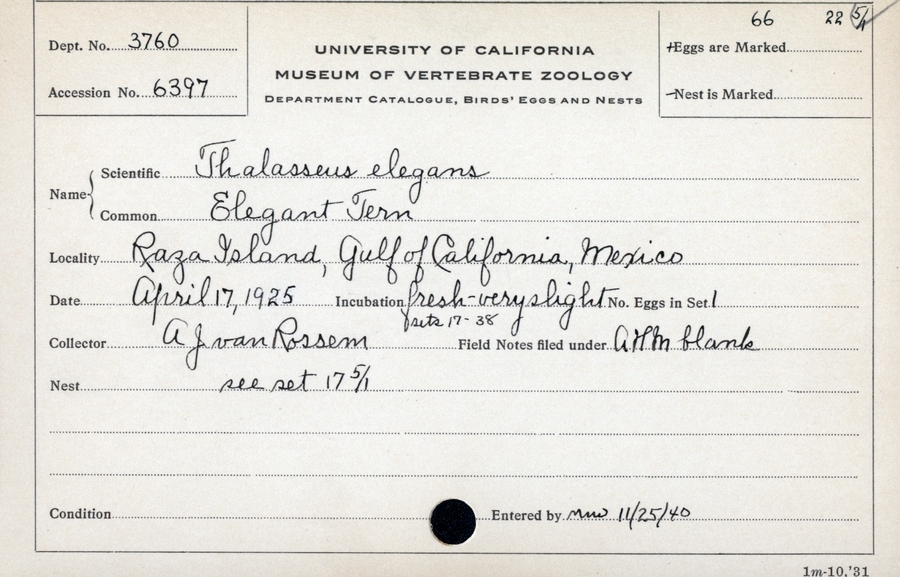 66 22 5/1
Dept. No. 3760
UNIVERSITY OF CALIFORNIA
+Eggs are Marked
MUSEUM OF VERTEBRATE ZOOLOGY
Accession No. 6397
DEPARTMENT CATALOGUE, BIRDS' EGGS AND NESTS
-Nest is Marked
Name { Scientific Thalasseus elegans
Common Elegant Tern
Locality Raza Island, Gulf of California, Mexico
Date April 17, 1925 Incubation fresh-very slight No. Eggs in Set 1
sets 17-38
Collector A J van Rossem Field Notes filed under AHM blank
Nest see set 17 5/1
Condition Entered by 11/25/40
1m-10,'31